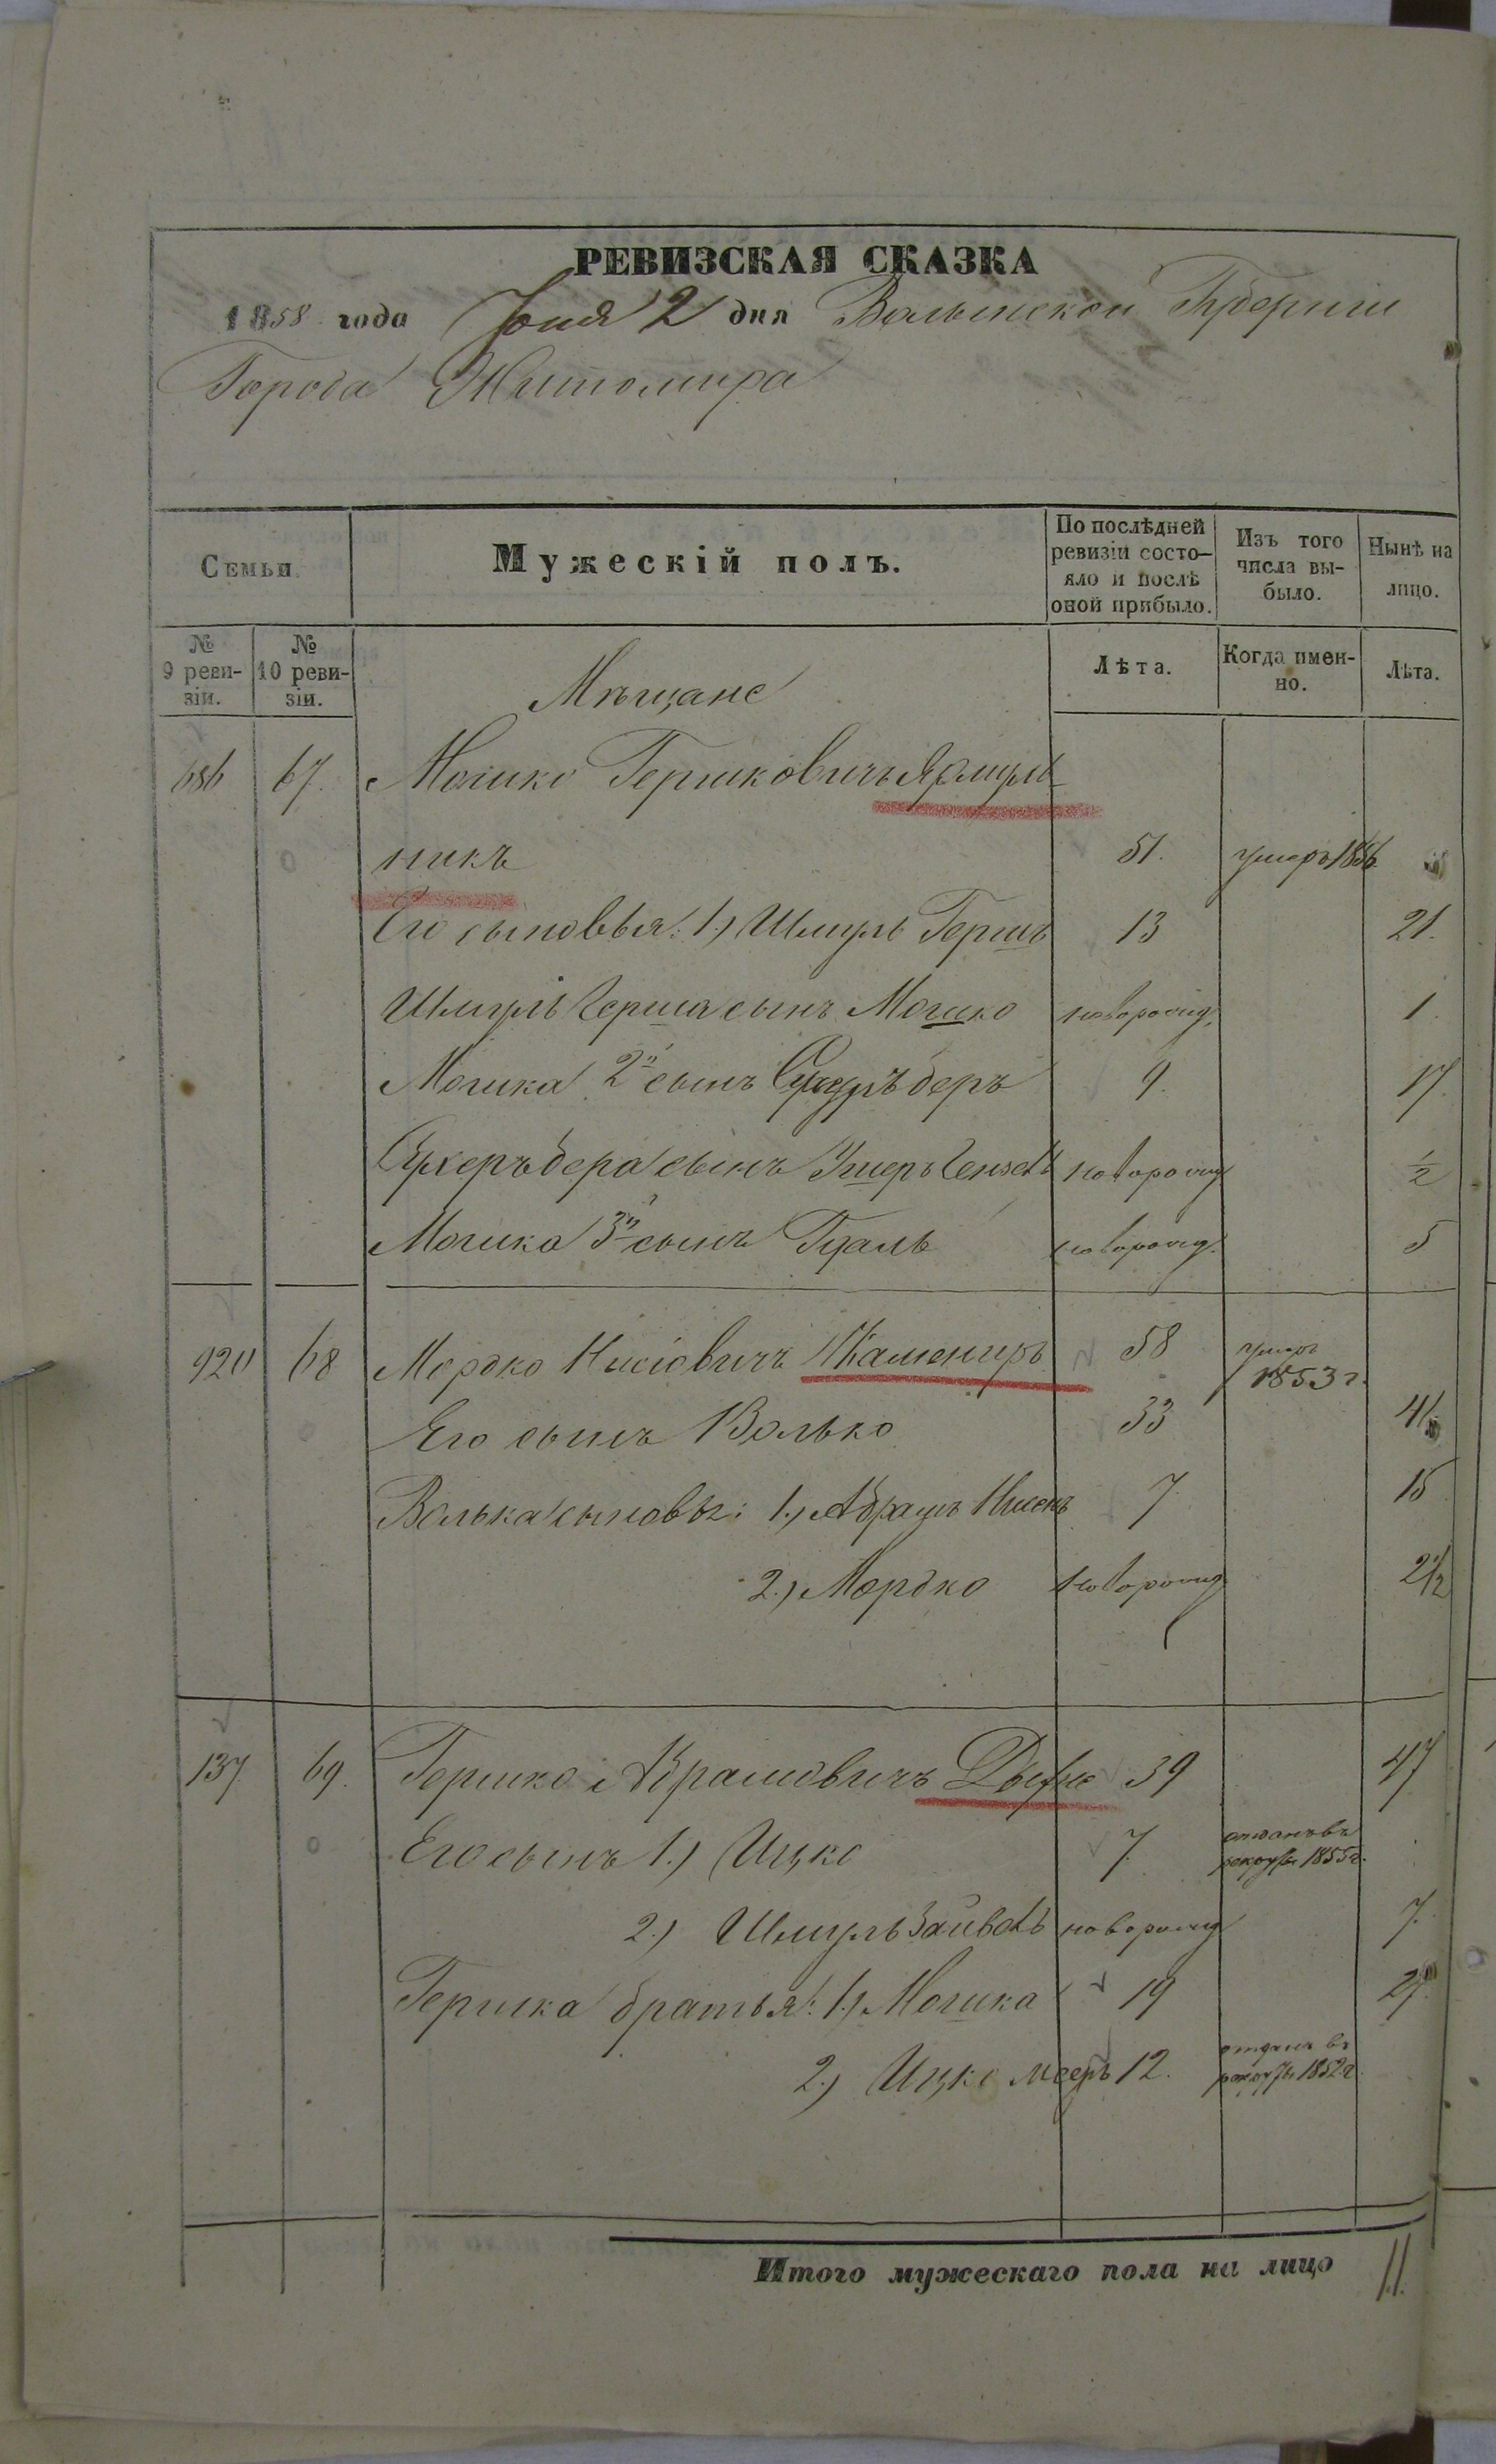 РЕВИЗСКАЯ СКАЗКА
1858 года Іюня 2 дня Волынской Губерніи
Города Житомира
Семьи.
Мужескій полъ.
По послѣдней ревизіи состо-
яло и послѣ
оной прибыло.
Изъ того
числа вы-
было.
Нынѣ на
лицо.
№
9 реви-
зіи.
№
10 реви-
зіи.
Лѣта.
Когда имен-
но.
Лѣта.
Мѣщане
686 67. Мошко Гершковичъ Ярмуль-
никъ 51. умеръ 1856
Его сыновья: 1.) Шмуль Гершъ 13 21.
Шмуль Герша сынъ Мошко новорожд. 1.
Мошка 2й сынъ беръ 9. 17.
бера сынъ новорожд 1/2
Мошка 3й сынъ новорожд. 5
920 68 Мордко Нисіовичъ Камениръ 58 умеръ
1853 г.
Его сынъ Волько 33 41
Волька сыновья: 1.) Абрамъ Нисенъ 7 15
2.) Мордко новорожд 2 1/2
137. 69. Гершко Абрамовичъ 39 47
Его сынъ 1.) Ицко 7. отданъ въ
рекруты 1855 г.
2.) Шмуль Зайвель новорожд 7.
Гершка братья: 1.) Мошка 19 27.
2.) Ицко Мееръ 12. отданъ въ
рекруты 1852 г.
Итого мужескаго пола на лицо 11.